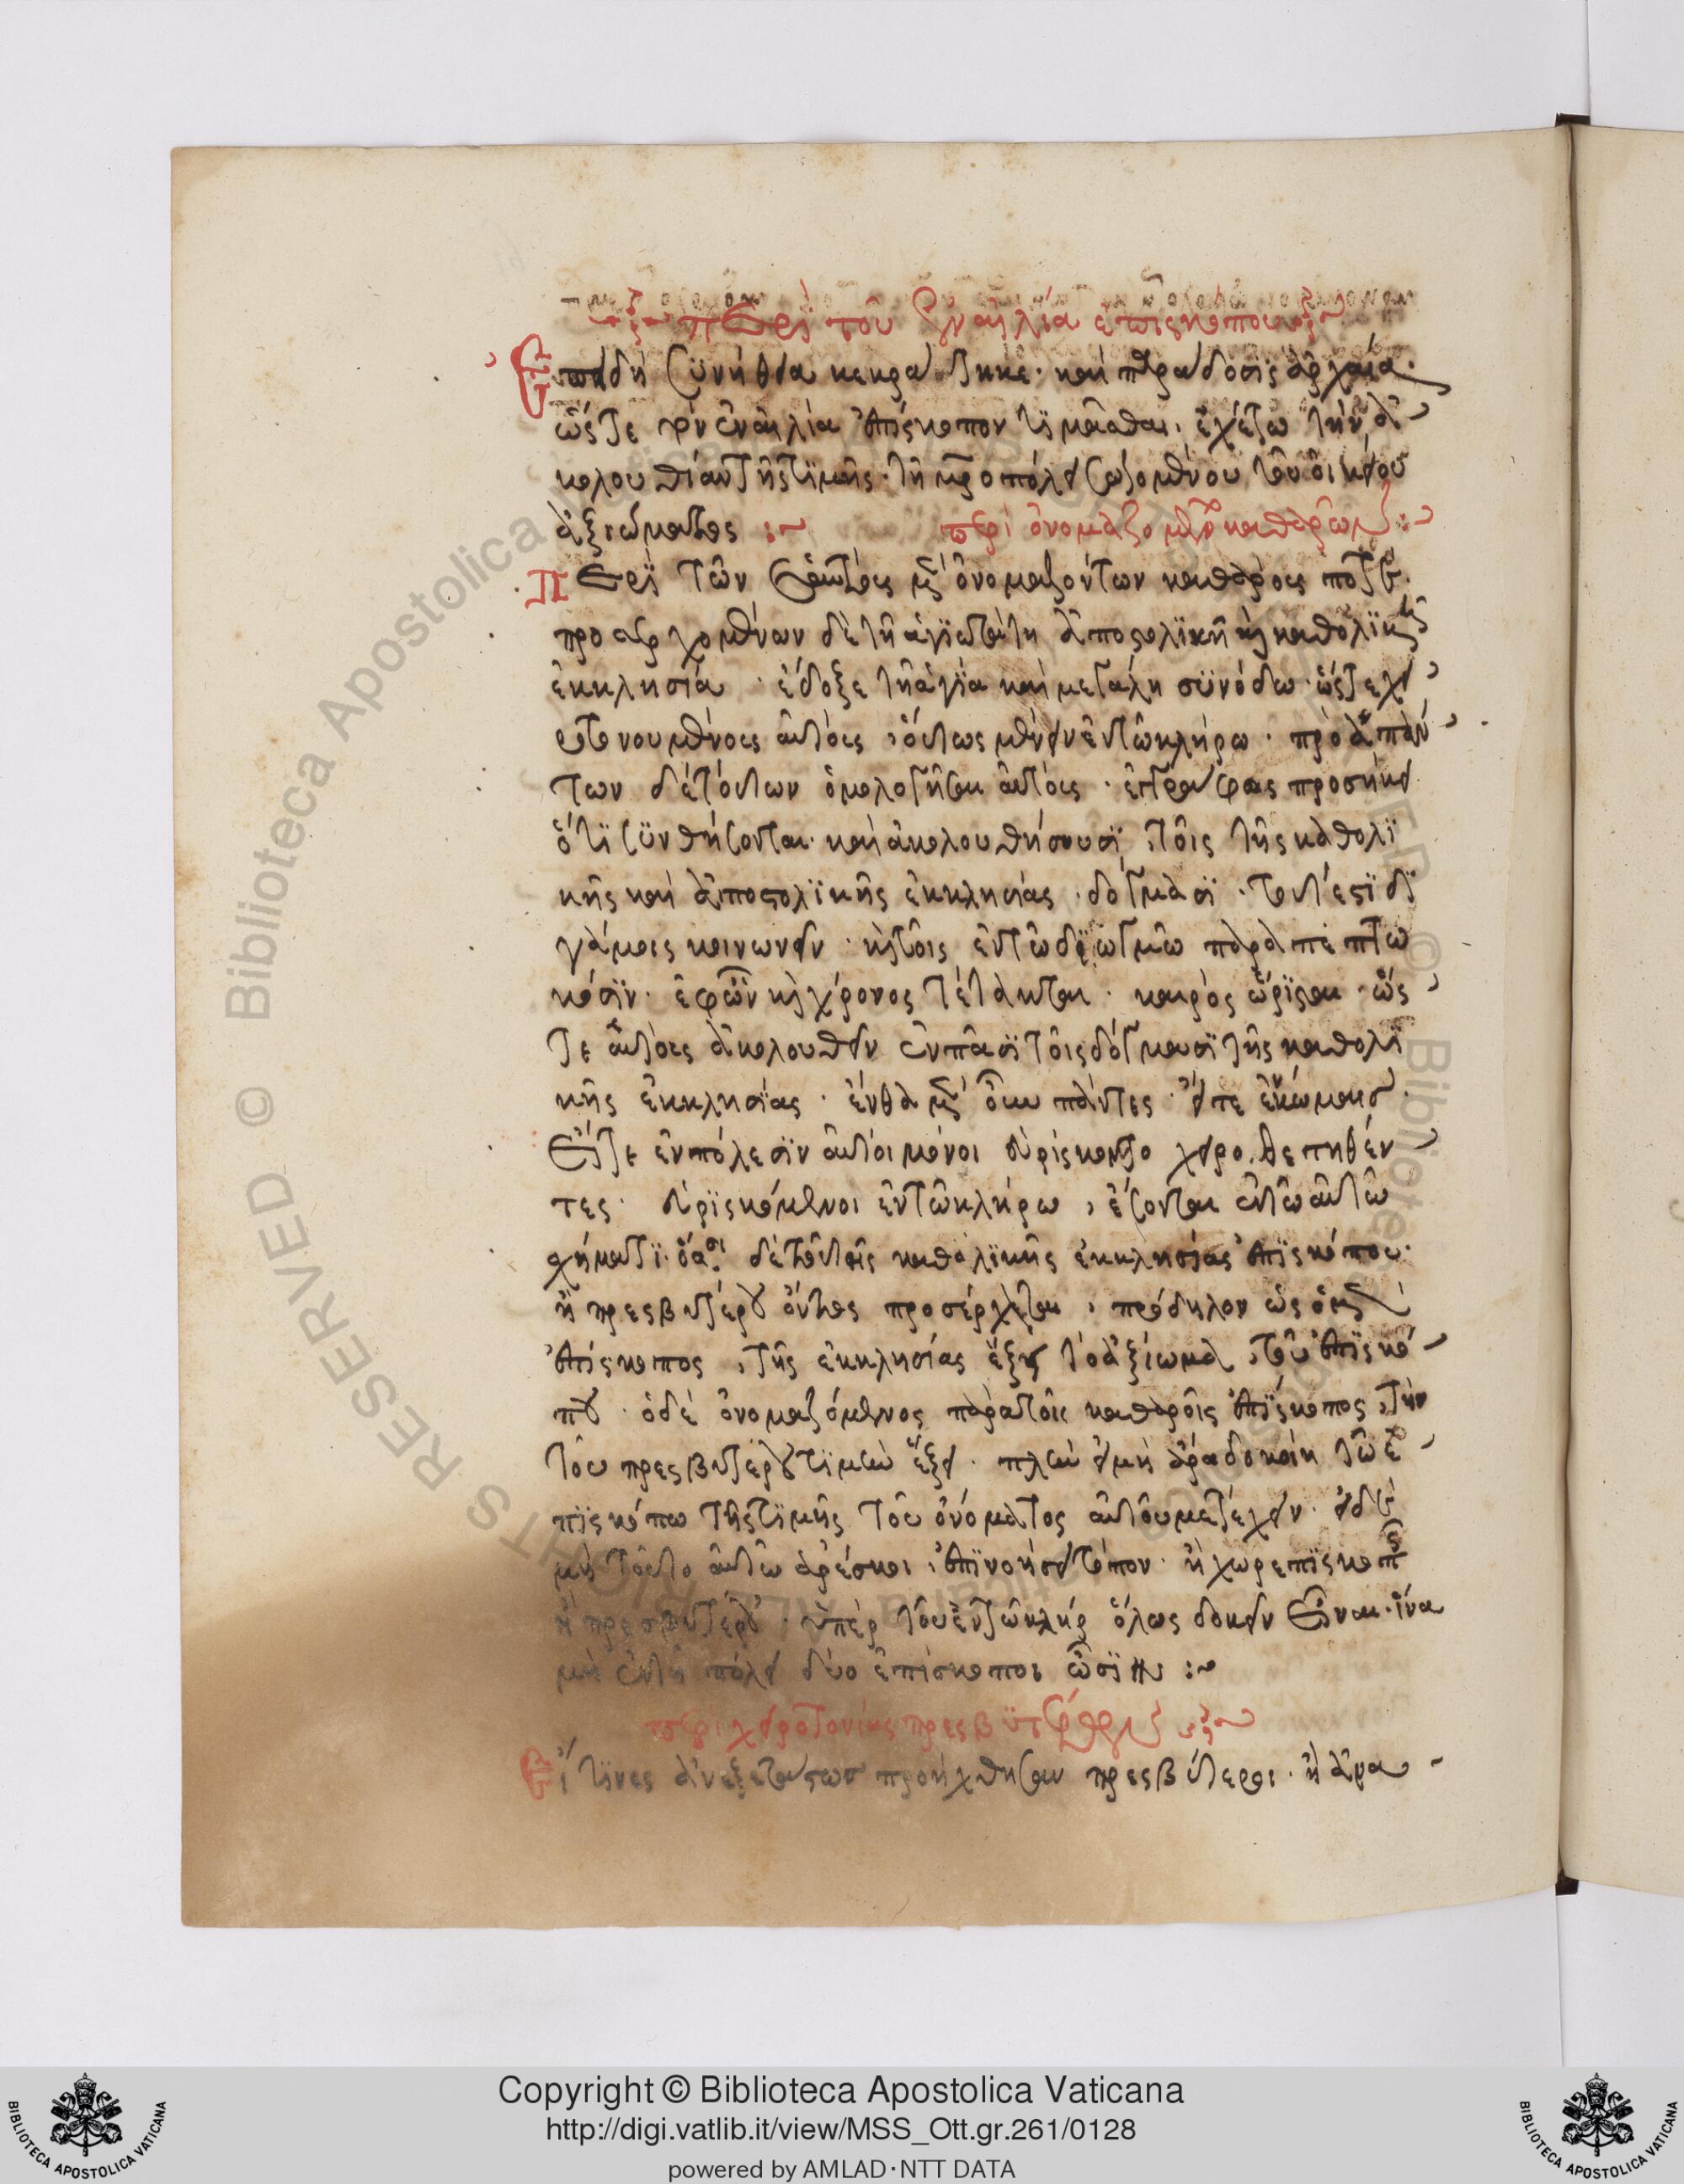 περὶ τοῦ ἐν αἰλία ἐπισκόπου
Ἐπειδὴ συνήθεια κεκράτηκε· καὶ παράδοσις ἀρχαία·
ὥστε τὸν ἐν αἰλία ἐπίσκοπον τιμᾶσθαι, ἐχέτω τὴν ἀ
κολουθίαν τῆς τιμῆς· τῆ μητροπόλει σωζομένου τοῦ οἰκείου
ἀξιώματος :~ περὶ ὀνομαζομένων καθαρῶν :~
Περὶ τῶν ἑαυτοὺς μὲν ὀνομαζόντων καθαροὺς ποτὲ·
προσερχομένων δὲ τῆ ἁγιωτάτη ἀποστολικῆ καὶ καθολικῆ
ἐκκλησία· ἔδοξε τῆ ἁγία καὶ μεγάλη συνόδω· ὥστε χει
ροτονουμένους αὐτοὺς, οὕτως μένειν ἐν τῶ κλήρω· πρὸ ἁπάν
των δὲ τούτων ὁμολογῆσαι αὐτοὺς· ἐγγράφως προσήκει
ὅτι συνθήσονται· καὶ ἀκολουθήσουσι, τοῖς τῆς καθολι
κῆς καὶ ἀποστολικῆς ἐκκλησίας· δόγμασι· τουτέστι δι
γάμοις κοινωνεῖν· καὶ τοῖς ἐν τῶ διωγμῶ παραπεπτω
κόσιν· ἐφ' ὧν καὶ χρόνος τέτακται· καιρὸς ὥρισται· ὥσ
τε αὐτοὺς ἀκολουθεῖν ἐν πᾶσι τοῖς δόγμασι τῆς καθολι
κῆς ἐκκλησίας· ἔνθα μὲν οὖν πάντες· εἴτε ἐν κώμαις·
Εἴτε ἐν πόλεσιν αὐτοὶ μόνοι εὑρίσκοιντο χειροτεπηθέν
τες· εὑρισκόμενοι ἐν τῶ κλήρω, ἔσονται ἐν τῶ αὐτῶ
σχήματι· ὅσοι δὲ τοῦ τῆς καθολικῆς ἐκκλησίας ἐπισκόπου·
ἢ πρεσβυτέρου ὄντος προσέρχεται, πρόδηλον ὡς ὁ μὲν
ἐπίσκοπος, τῆς ἐκκλησίας ἕξει τὸ ἀξίωμα, τοῦ ἐπισκό
που· ὁ δὲ ὀνομαζόμενος παρὰ τοῖς καθαροῖς ἐπίσκοπος, τὴν
τοῦ πρεσβυτέρου τιμὴν ἕξει· πλὴν εἰ μὴ ἄρα δοκοίη τῶ ἐ
πισκόπω τῆς τιμῆς τοῦ ὀνόματος αὐτοῦ μετέχειν· εἰ δὲ
μὴ τοῦτο αὐτῶ ἀρέσκοι, ἐπινοήσει τόπον· ἢ χωρεπισκόπου
ἢ πρεσβυτέρου· ὑπὲρ τοῦ ἐν τῶ κλήρ ὅλως δοκεῖν εἶναι· ἵνα
μὴ ἐν τῆ πόλει δύο ἐπίσκοποι ὦσιν :~
περὶ χειροτονίας πρεσβυτέρων :~
Εἴ τινες ἀνεξετάστως προήχθησαν πρεσβύτεροι· ἢ ἀνα
Copyright © Biblioteca Apostolica Vaticana
http://digi.vatlib.it/view/MSS_Ott.gr.261/0128
powered by AMLAD·NTT DATA
BIBLIOTECA APOSTOLICA VATICANA
BIBLIOTECA APOSTOLICA VATICANA